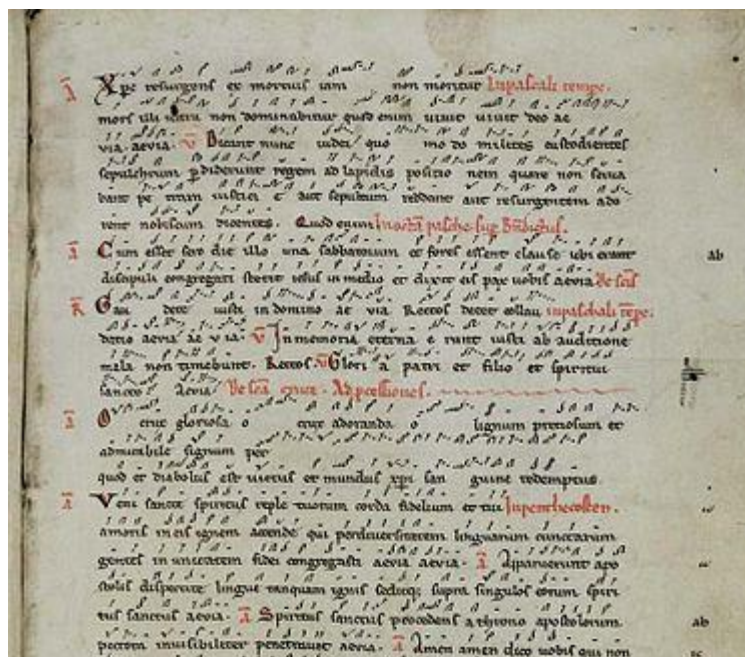 A Xpe resurgens ex mortuis iam non moritur In pascali tempe.
mors illi ultra non dominabitur quod enim uiuit uiuit deo ae
uia aeuia. V Dicant nunc iudei quo mo do milites custodientes
sepulchrum pdiderunt regem ad lapidis positio nem quare non serua
bant pe tram iusticie aut sepultum reddant aut resurgentem ado
rent nobiscum dicentes. Quod enim
A Cum esset sero die illo una sabbatorum et fores essent clause ubi erant ab
discipuli congregati stetit iesus in medio et dixit eis pax uobis aeuia
R Gau dete iusti in domino ae uia Rectos decet collau in paschali tempe.
datio aeuia ae uia. V In memoria eterna e runt iusti ab auditione
mala non timebunt. Rectos. V Glori a patri et filio et spiritui
sancto aeuia De sca cruce. Ad pcessiones.
A O crux gloriosa o crux adoranda o lignum preciosum et
admirabile signum per
quod et diabolus est uictus et mundus xpi san guine redemptus.
A Veni sancte spiritus reple tuorum corda fidelium et tui In penthecosten.
amoris in eis ignem accende qui per diuersitatem linguarum cunctarum
gentes in unitatem fidei congregasti aeuia aeuia. A Apparuerunt apo
stolis dispertite lingue tanquam ignis seditque supra singulos eorum spiri
tus sanctus aeuia. A Spiritus sanctus procedens a throno apostolorum ab
pectora inuisibiliter penetrauit aeuia. A Amen amen dico uobis qui non